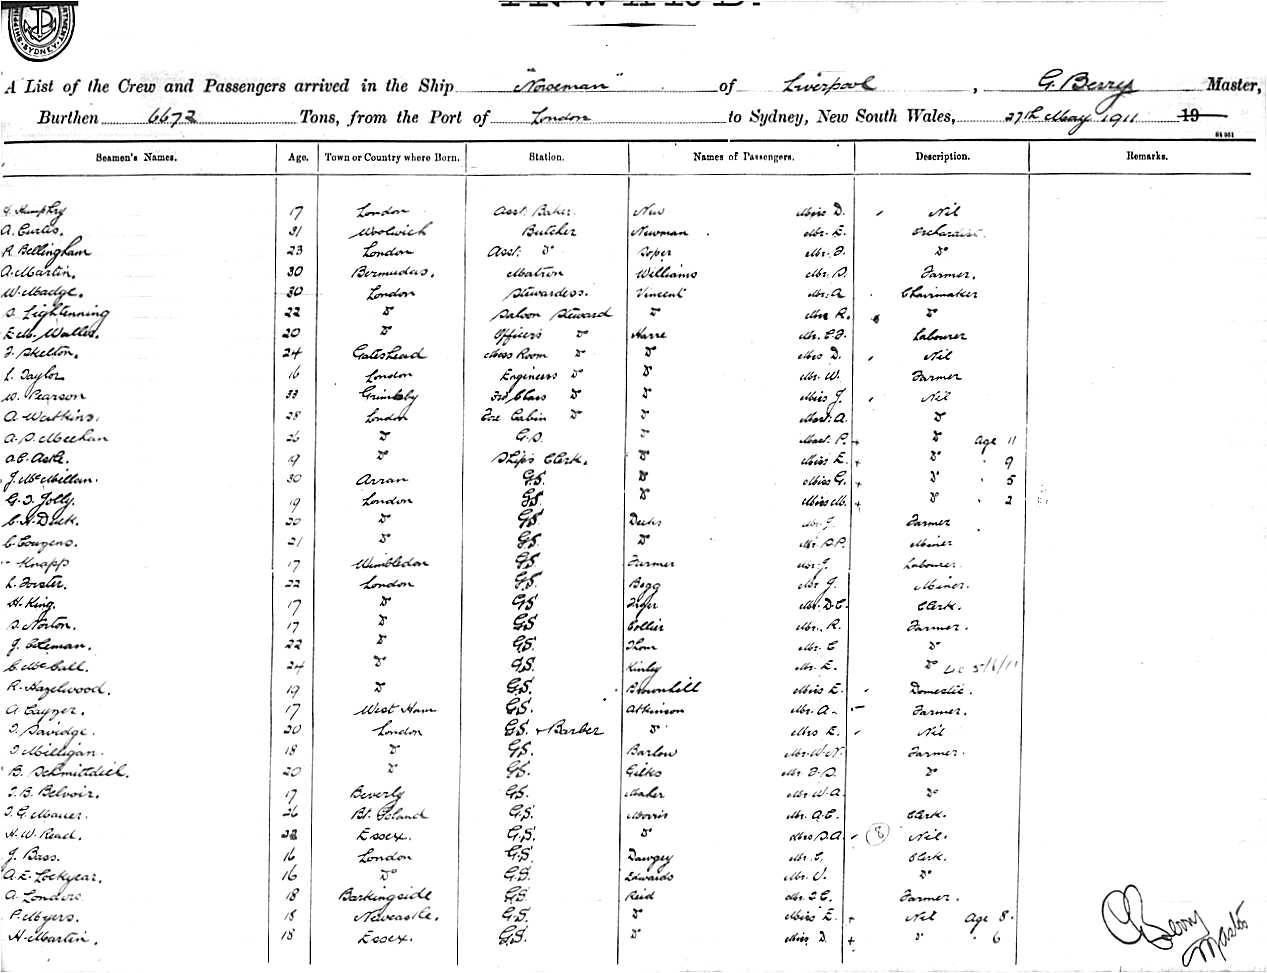 SHIPPING DEPARTMENT. SYDNEY.
INWARD.
A List of the Crew and Passengers arrived in the Ship "Norseman" of Liverpool, G. Berry Master,
Burthen 6672 Tons, from the Port of London to Sydney, New South Wales, 27th May 1911 19
Seamen's Names. Age. Town or Country where Born. Station. Names of Passengers. Description. Remarks.
Humphry 17 London Asst. Baker New Miss D. Nil
A. Curtis. 31 Woolwich Butcher Newman Mr. E. Orchardist.
R. Bellingham 23 London Asst. Do Soper Mr. F. Do
A. Martin. 30 Bermudas. Matron Williams Mr. S. Farmer.
W. Madge. 30 London Stewardess. Vincent Mr. A Chairmaker
S. Lightenning 22 Do Saloon Steward Do Mrs R. Do
E. M. Walles. 20 Do Officers Do Harre Mr. C. F. Labourer
F. Skelton. 24 Gateshead Mess Room Do Do Mrs D. Nil
L. Taylor 16 London Engineers Do Do Mr. W. Farmer
W. Pearson 33 Grimsby 3rd Class Do Do Miss J. Nil
A. Watkins. 28 London Fore Cabin Do Do Mast. A. Do
A. S. Meehan 26 Do G.S. Do Mast. P. + Do Age 11
Aske. 19 Do Ship's Clerk. Do Miss E. + Do " 9
J. McMillan. 30 Arran G.S. Do Miss G. + Do " 5
G. F. Jolly. 19 London G.S. Do Miss M. + Do " 2
C. H. Dack. 20 Do G.S. Deeks Mr. J. Farmer
C. Couzens. 21 Do G.S. Do Mr. S.P. Miner
Knapp 17 Wimbledon G.S. Farmer Mr J. Labourer
L. Forster. 22 London G.S. Begg Mr J. Miner.
H. King. 17 Do G.S. Mr. D.C. Clerk.
S. Norton. 17 Do G.S. Collier Mr. R. Farmer.
J. Coleman. 22 Do G.S. Thom Mr. C Do
C. McCall. 24 Do G.S. Kinley Mr. E. Do
R. Hazelwood. 19 Do G.S. Brownhill Miss E. Domestic.
A Cayzer. 17 West Ham G.S. Atkinson Mr. A. Farmer.
F. Savidge. 20 London G.S. + Barber Do Mrs E. Nil
F. Milligan. 18 Do G.S. Barlow Mr. W. N. Farmer.
B. Schmittdiel. 20 Do G.S. Gilks Mr F. S. Do
B. Belvoir. 17 Beverly G.S. Maher Mr W. A. Do
F. G. Mauer. 26 G.S. Morris Mr. A. C. Clerk.
H. W. Read. 22 Essex. G.S. Do Mrs S.A. 8 Nil.
J. Bass. 16 London G.S. Dawgey Mr. C. Clerk.
A. E. Lockyear. 16 Do G.S. Edwards Mr. V. Do
A. Londers 18 Barkingside G.S. Reid Farmer.
P. Myers. 18 Newcastle. G.S. Do Miss E. + Nil Age 8.
H. Martin. 18 Essex. G.S. Do Miss D. + Do " 6
G Berry
Master